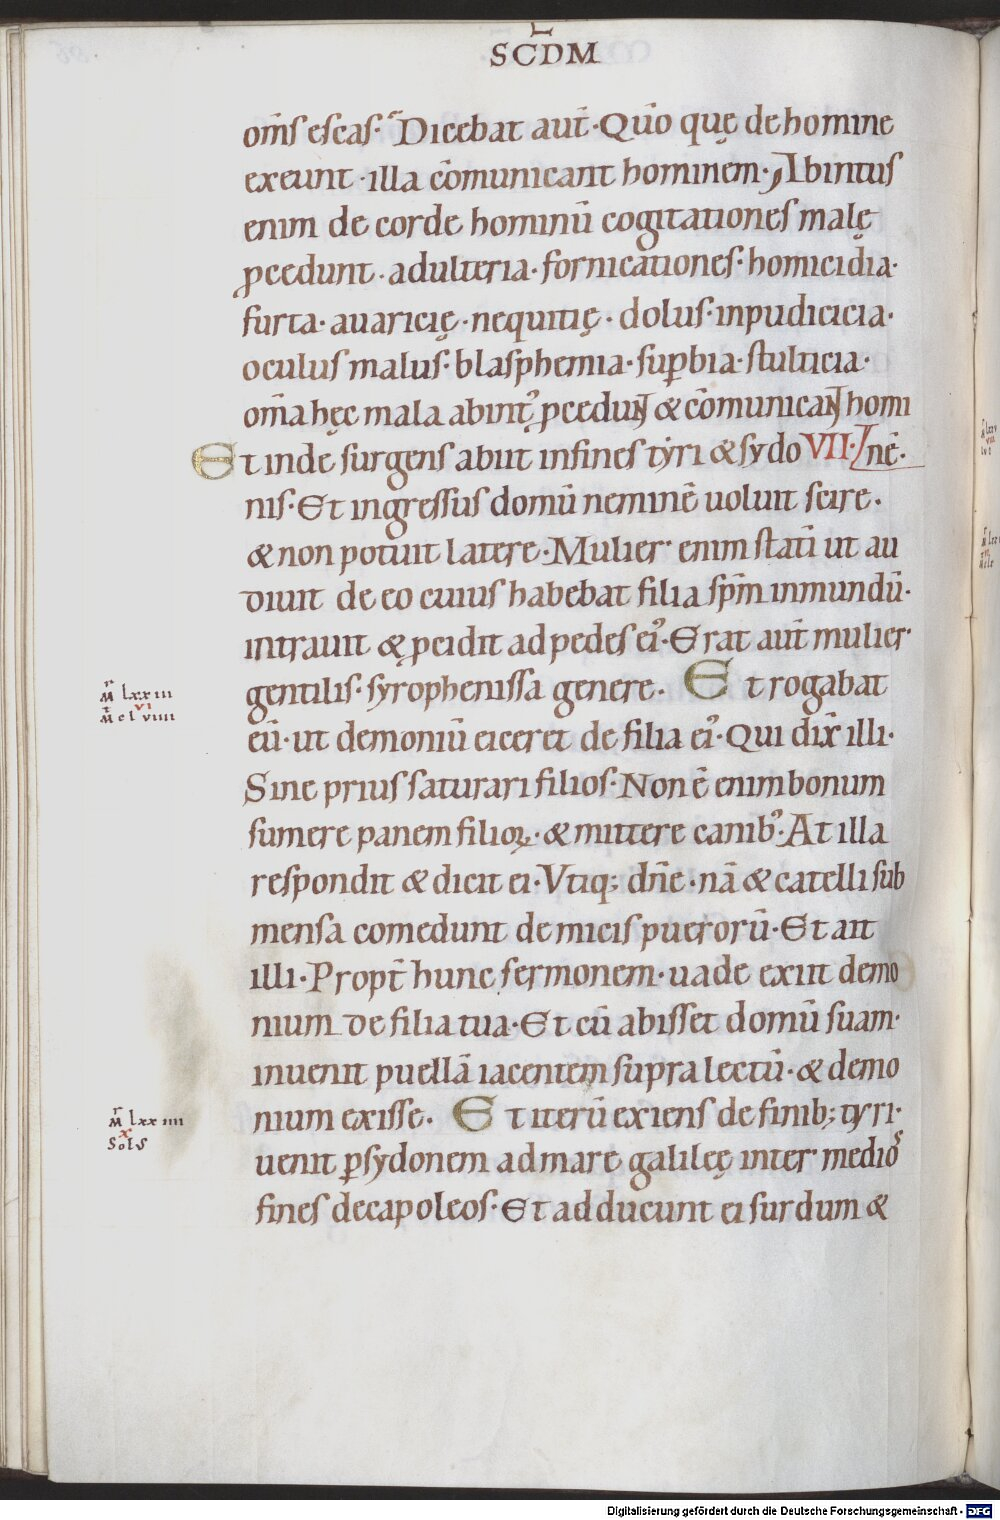 SCDM
om̄s escas. Dicebat aut̄. Qūo quę de homine
exeunt. illa cōmunicant hominem. Ab intus
enim de corde hominū cogitationes malę
ꝓcedunt. adulteria. fornicationes. homicidia.
furta. auaricię. nequitię. dolus. inpudicicia.
oculus malus. blasphemia. suꝑbia. stulticia.
om̄a hęc mala ab int᾿ ꝓcedunt & cōmunicant homi
Et inde surgens abiit in fines tyri & sydo VII. nē.
nis. Et ingressus domū neminē uoluit scire.
& non potuit latere. Mulier enim statī ut au
diuit de eo cuius habebat filia sp̄m inmundū.
intrauit & ꝓcidit ad pedes ei᾿. Erat aut̄ mulier
gentilis. syrophenissa genere. Et rogabat
eū. ut demoniū eiceret de filia ei᾿. Qui dix̄ illi.
Sine prius saturari filios. Non ē enim bonum
sumere panem filioꝝ. & mittere canib᾿. At illa
respondit & dicit ei. Vtiq; dn̄e. nā & catelli sub
mensa comedunt de micis puerorū. Et ait
illi. Propt̄ hunc sermonem. uade exiit demo
nium de filia tua. Et cū abisset domū suam.
inuenit puellā iacentem supra lectū. & demo
nium exisse. Et iterū exiens de finib; tyri.
uenit ꝑ sydonem ad mare galileę inter medios
fines decapoleos. Et adducunt ei surdum &
M̄ lxxiii
vi
M̄ clviiii
M̄ lxxiiii
x
Sols
Digitalisierung gefördert durch die Deutsche Forschungsgemeinschaft - DFG